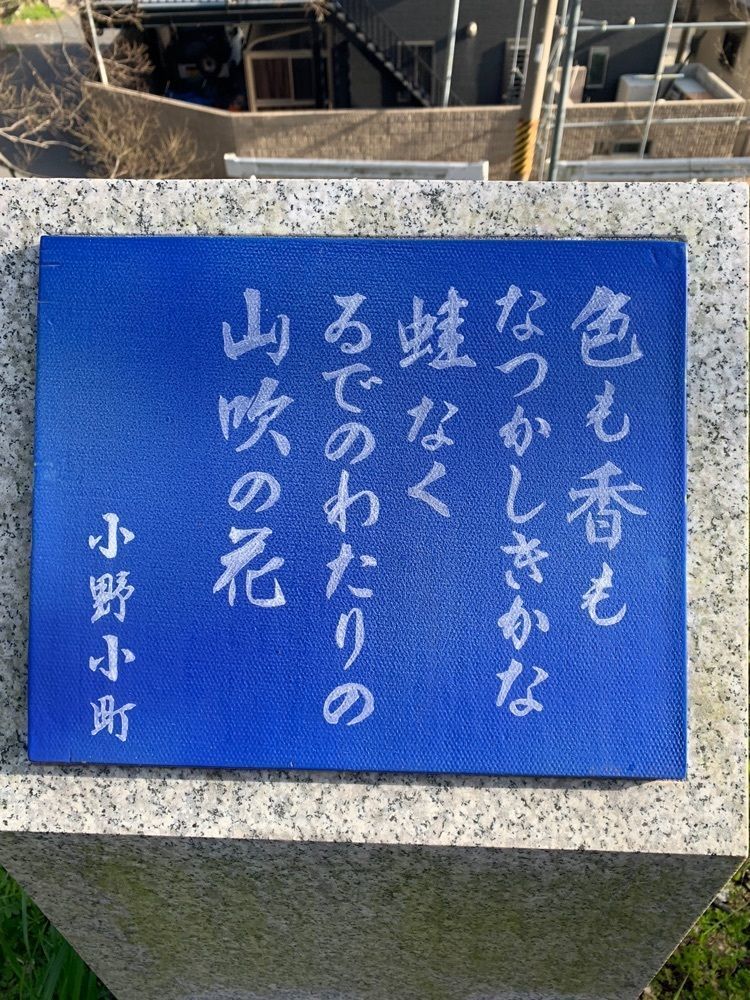 色も香も
なつかしきかな
蛙なく
ゐでのわたりの
山吹の花
小野小町